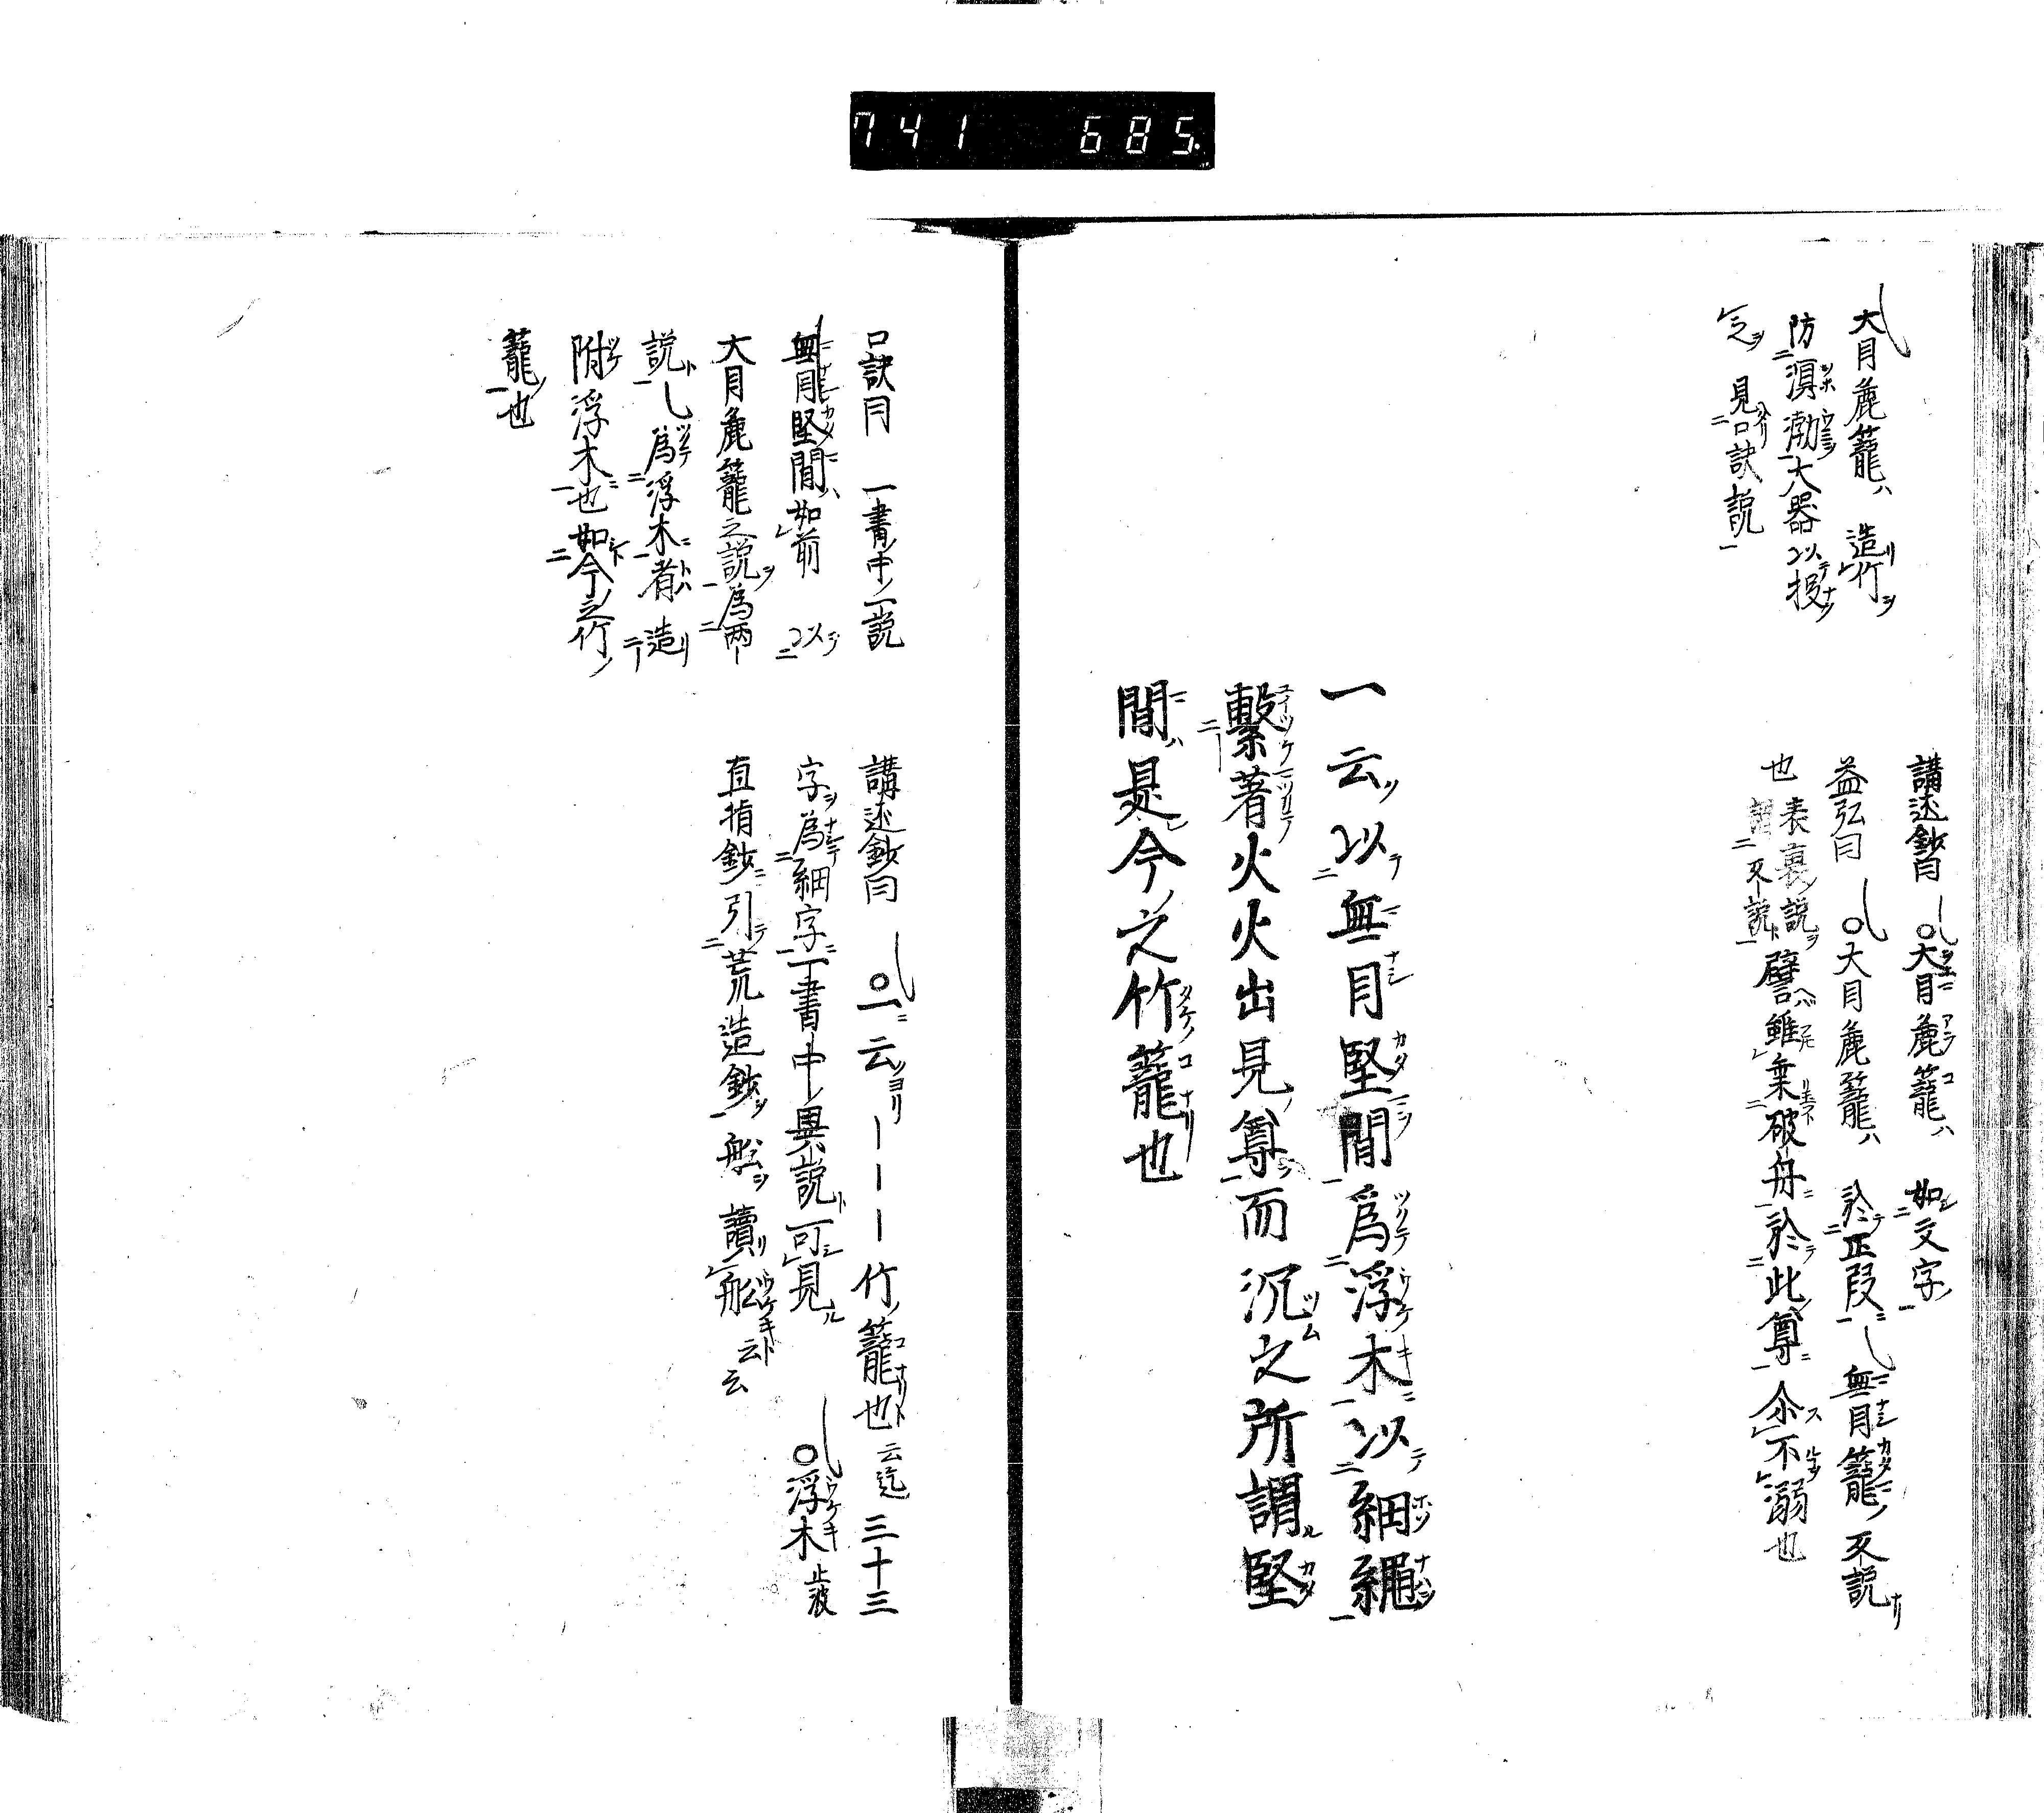 741 685
大目麁籠ハ 造竹ヲ
防溟渤大器以投
之 見口訣説
講述鈔曰 大目麁籠ハ 如文字
益弘曰 大目麁籠ハ 於正段 無目籠ノ 又説ナリ
也 表裏ノ説ヲ
又説ト 譬雖棄破舟ニ於此尊ニ 尒不溺也
一云以無目堅間為浮木以細縄
繋著火火出見尊而沉之所謂堅
間ハ是今ノ之竹籠也
口訣曰 一書中ノ一説
無目堅間ハ如前 以
大目麁籠之説ヲ為両
説ト 為浮木者 造
附浮木也如今之竹ノ
籠也
講述鈔曰 一云ヨリ―――竹籠也ト云迄三十三
字ヲ為細字一書中ノ異説ト可見ル
直指鈔引荒造鈔ヲ船ヲ讀舩云云
浮木 止波